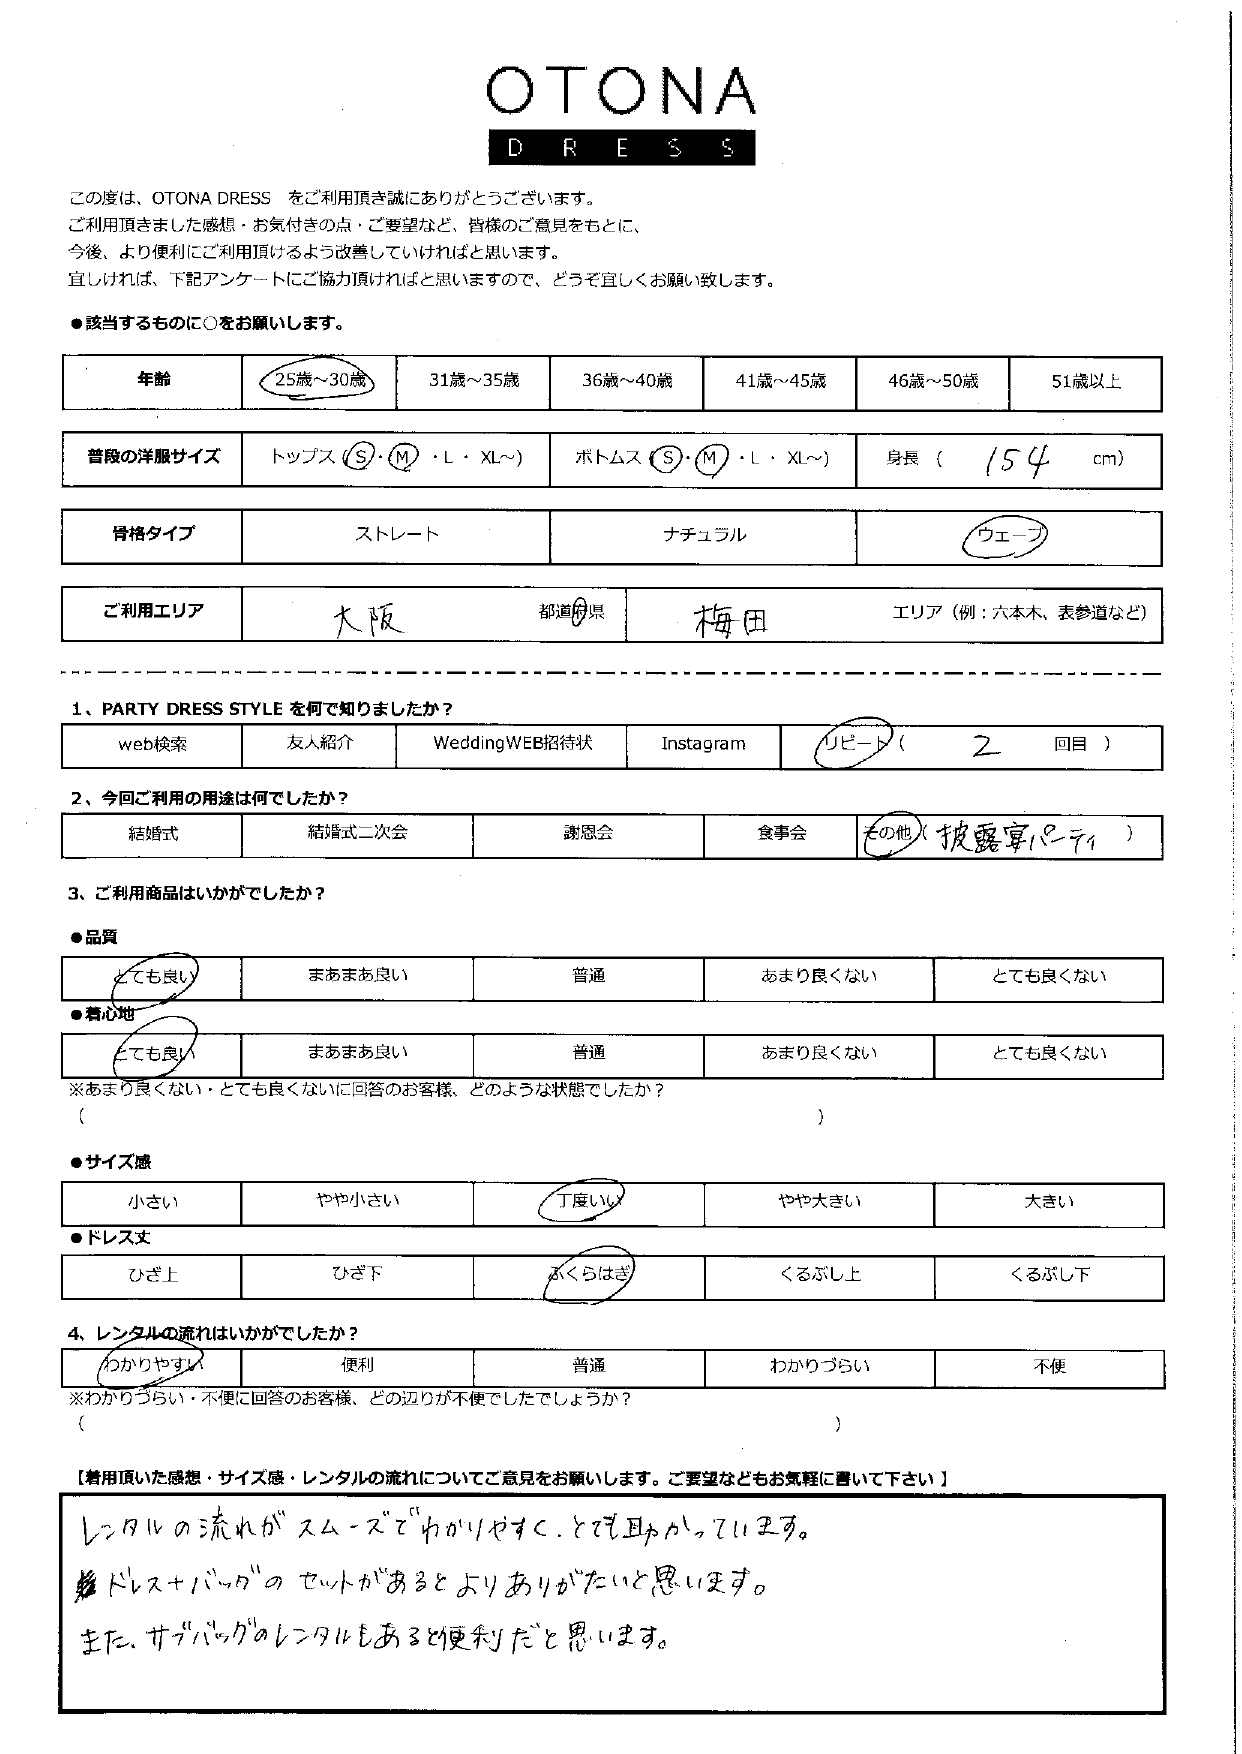 OTONA
DRESS
この度は、OTONA DRESS　をご利用頂き誠にありがとうございます。
ご利用頂きました感想・お気付きの点・ご要望など、皆様のご意見をもとに、
今後、より便利にご利用頂けるよう改善していければと思います。
宜しければ、下記アンケートにご協力頂ければと思いますので、どうぞ宜しくお願い致します。
●該当するものに○をお願いします。
年齢 25歳～30歳 31歳～35歳 36歳～40歳 41歳～45歳 46歳～50歳 51歳以上
普段の洋服サイズ トップス（S・M ・L ・ XL～) ボトムス（S・M ・L ・ XL～) 身長 （ 154 cm）
骨格タイプ ストレート ナチュラル ウェーブ
ご利用エリア 大阪 都道府県 梅田 エリア（例：六本木、表参道など）
1、PARTY DRESS STYLE を何で知りましたか？
web検索 友人紹介 WeddingWEB招待状 Instagram リピート（ 2 回目 ）
2、今回ご利用の用途は何でしたか？
結婚式 結婚式二次会 謝恩会 食事会 その他（ 披露宴パーティ ）
3、ご利用商品はいかがでしたか？
●品質
とても良い まあまあ良い 普通 あまり良くない とても良くない
●着心地
とても良い まあまあ良い 普通 あまり良くない とても良くない
※あまり良くない・とても良くないに回答のお客様、どのような状態でしたか？
（ ）
●サイズ感
小さい やや小さい 丁度いい やや大きい 大きい
●ドレス丈
ひざ上 ひざ下 ふくらはぎ くるぶし上 くるぶし下
4、レンタルの流れはいかがでしたか？
わかりやすい 便利 普通 わかりづらい 不便
※わかりづらい・不便に回答のお客様、どの辺りが不便でしたでしょうか？
（ ）
【着用頂いた感想・サイズ感・レンタルの流れについてご意見をお願いします。ご要望などもお気軽に書いて下さい 】
レンタルの流れがスムーズでわかりやすく、とても助かっています。
ドレス＋バッグのセットがあるとよりありがたいと思います。
また、サブバッグのレンタルもあると便利だと思います。